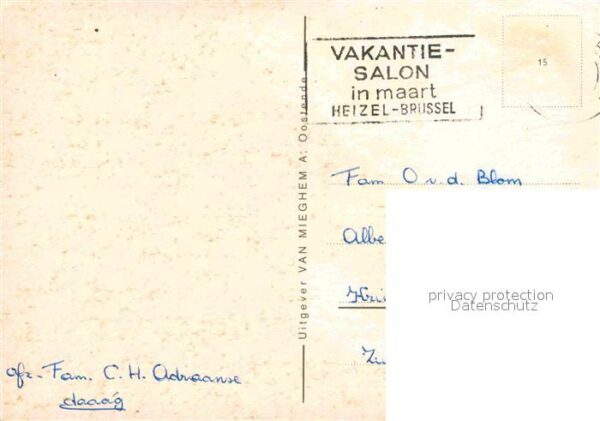 VAKANTIE-
SALON
in maart
HEIZEL-BRUSSEL
15
Uitgever VAN MIEGHEM A: Oostende
Fam O v. d. Blom
Albe
privacy protection
Datenschutz
afz. Fam. C. H. Adriaanse
daaag